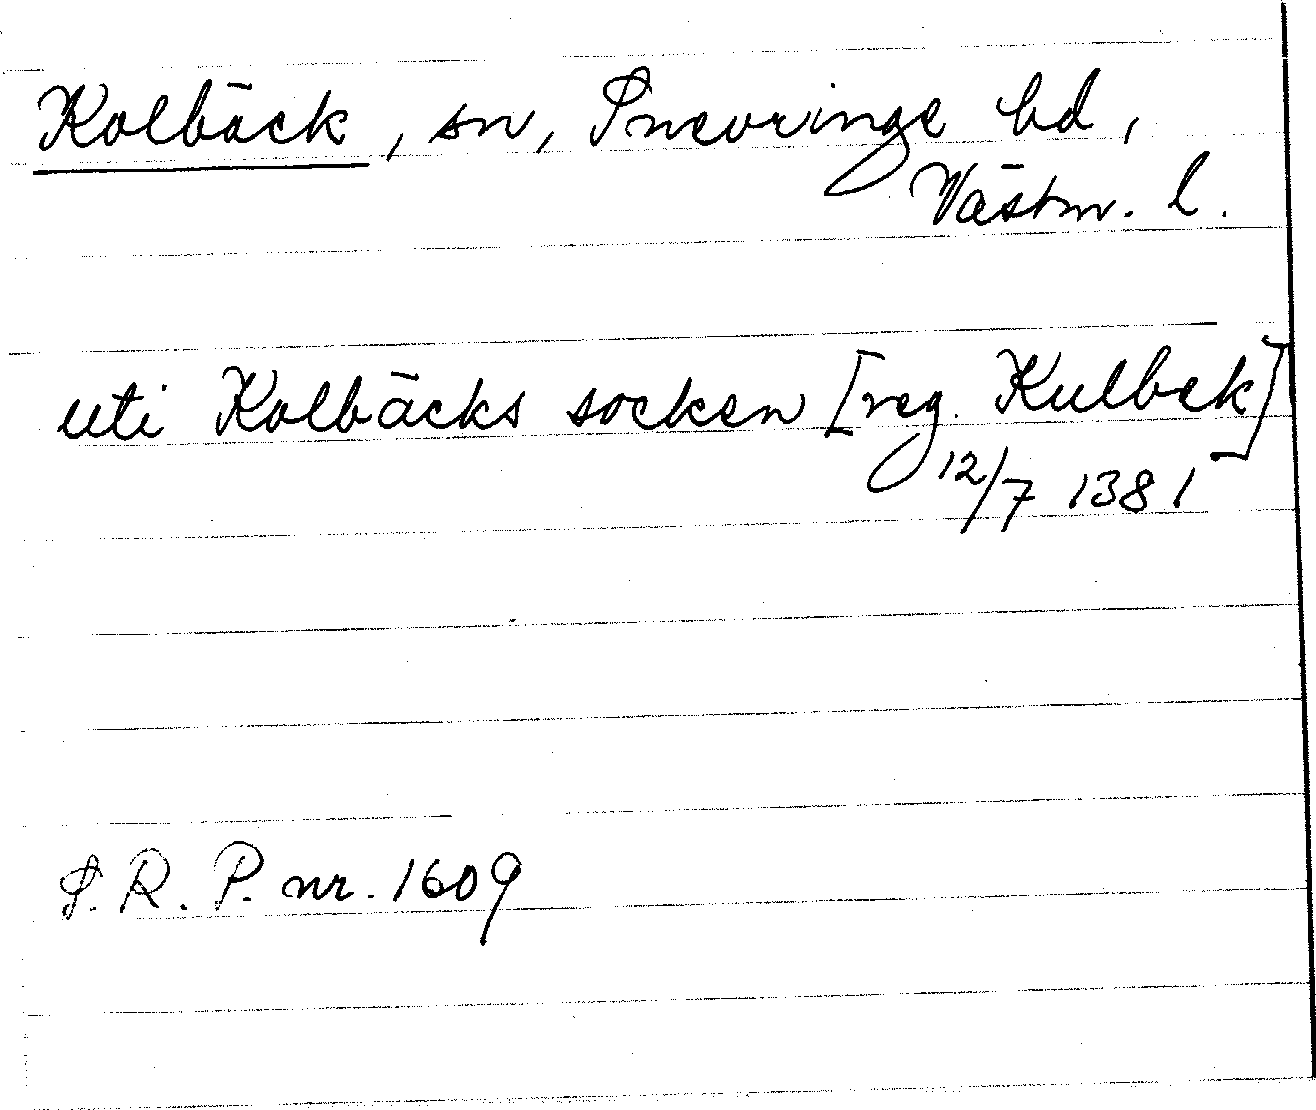 Kolbäck, sn, Snevringe hd,
Västm. l.
uti Kolbäcks socken [reg. Kulbek]
12/7 1381
S.R.P. nr. 1609